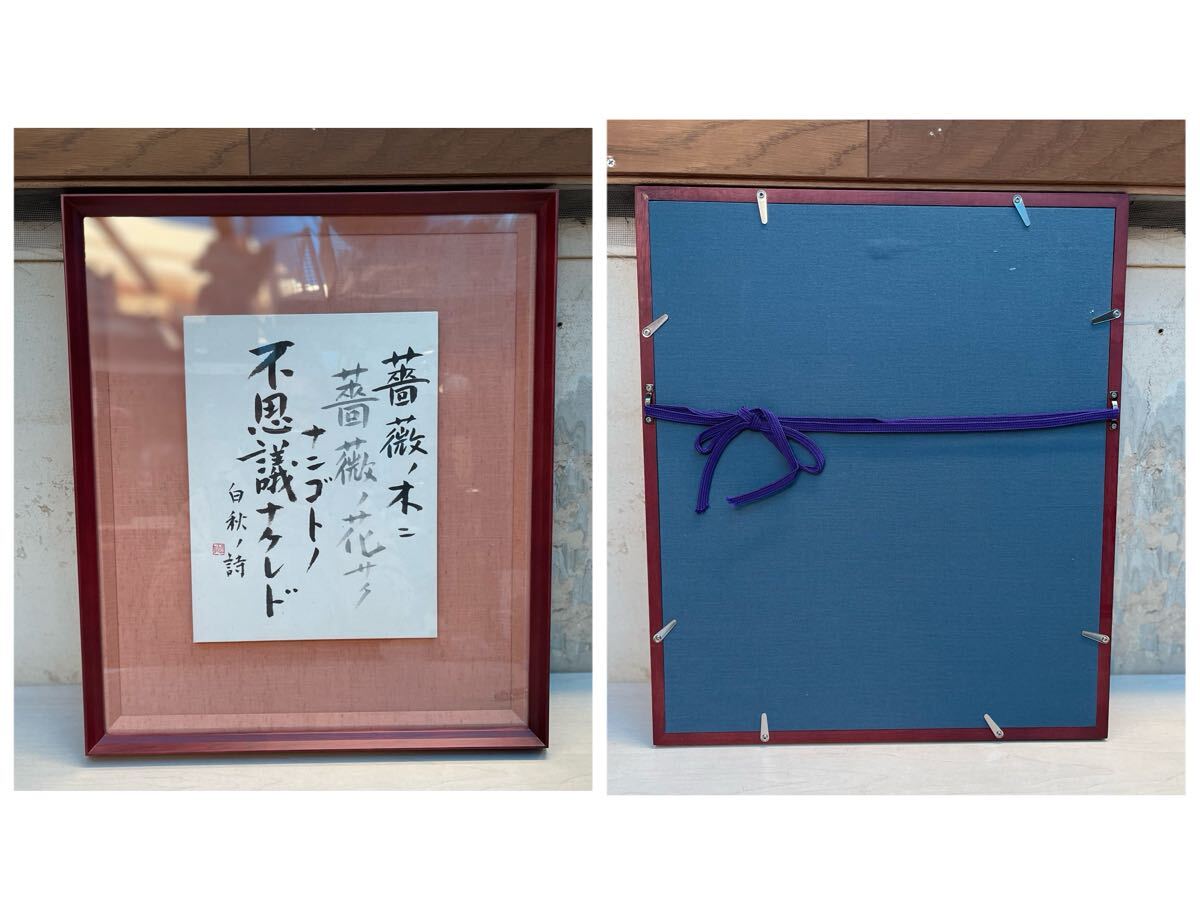 薔薇ノ木ニ
薔薇ノ花サク
ナニゴトノ
不思議ナケレド
白秋ノ詩